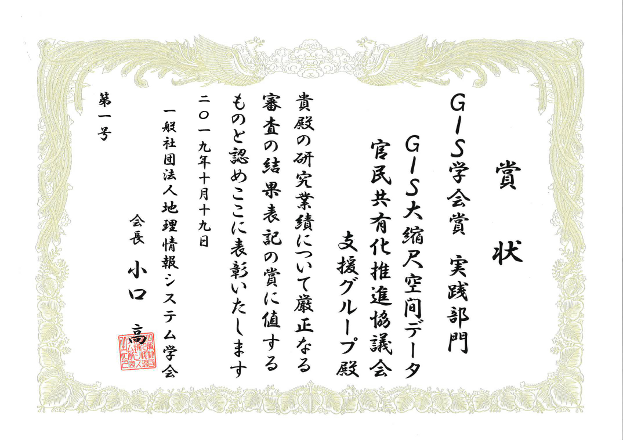 賞状
GIS学会賞 実践部門
GIS大縮尺空間データ
官民共有化推進協議会
支援グループ殿
貴殿の研究業績について厳正なる
審査の結果表記の賞に値する
ものと認めここに表彰いたします
二〇一九年十月十九日
一般社団法人地理情報システム学会
会長 小口 高
第一号